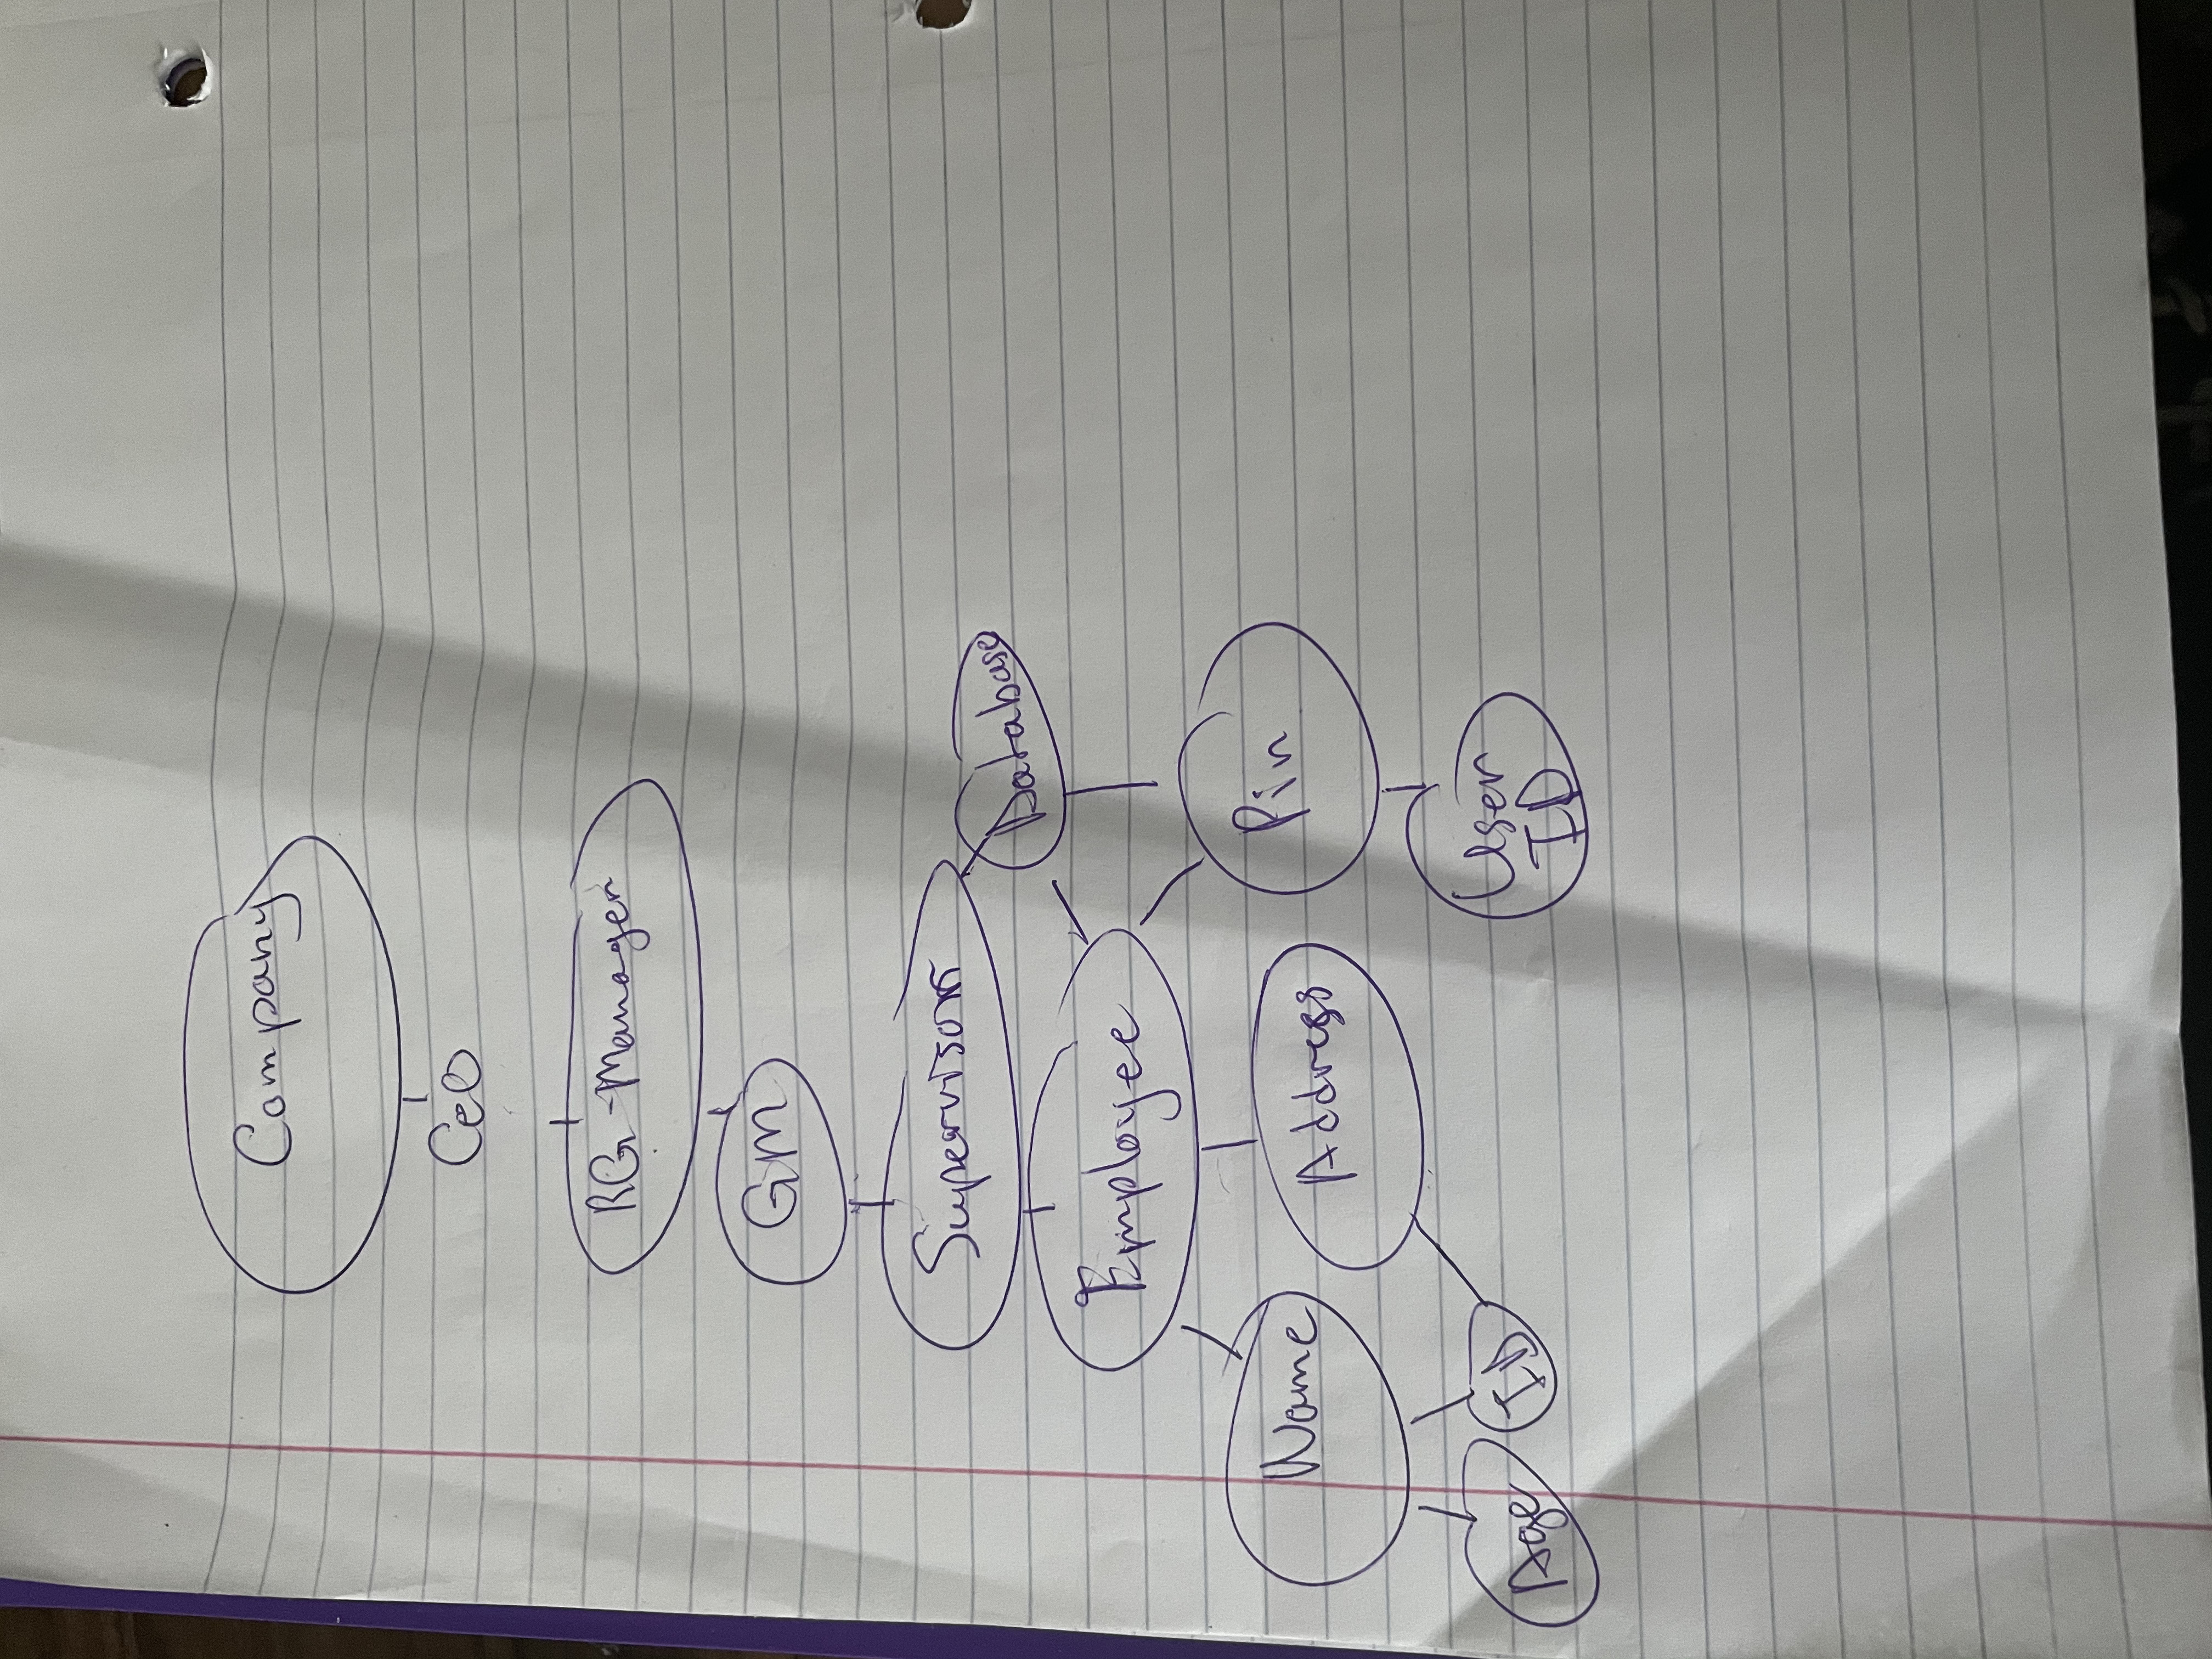 Company
CeO
RG-Manager
GM
Supervisor
Database
Employee
Name
Address
Pin
Age
ID
User
ID